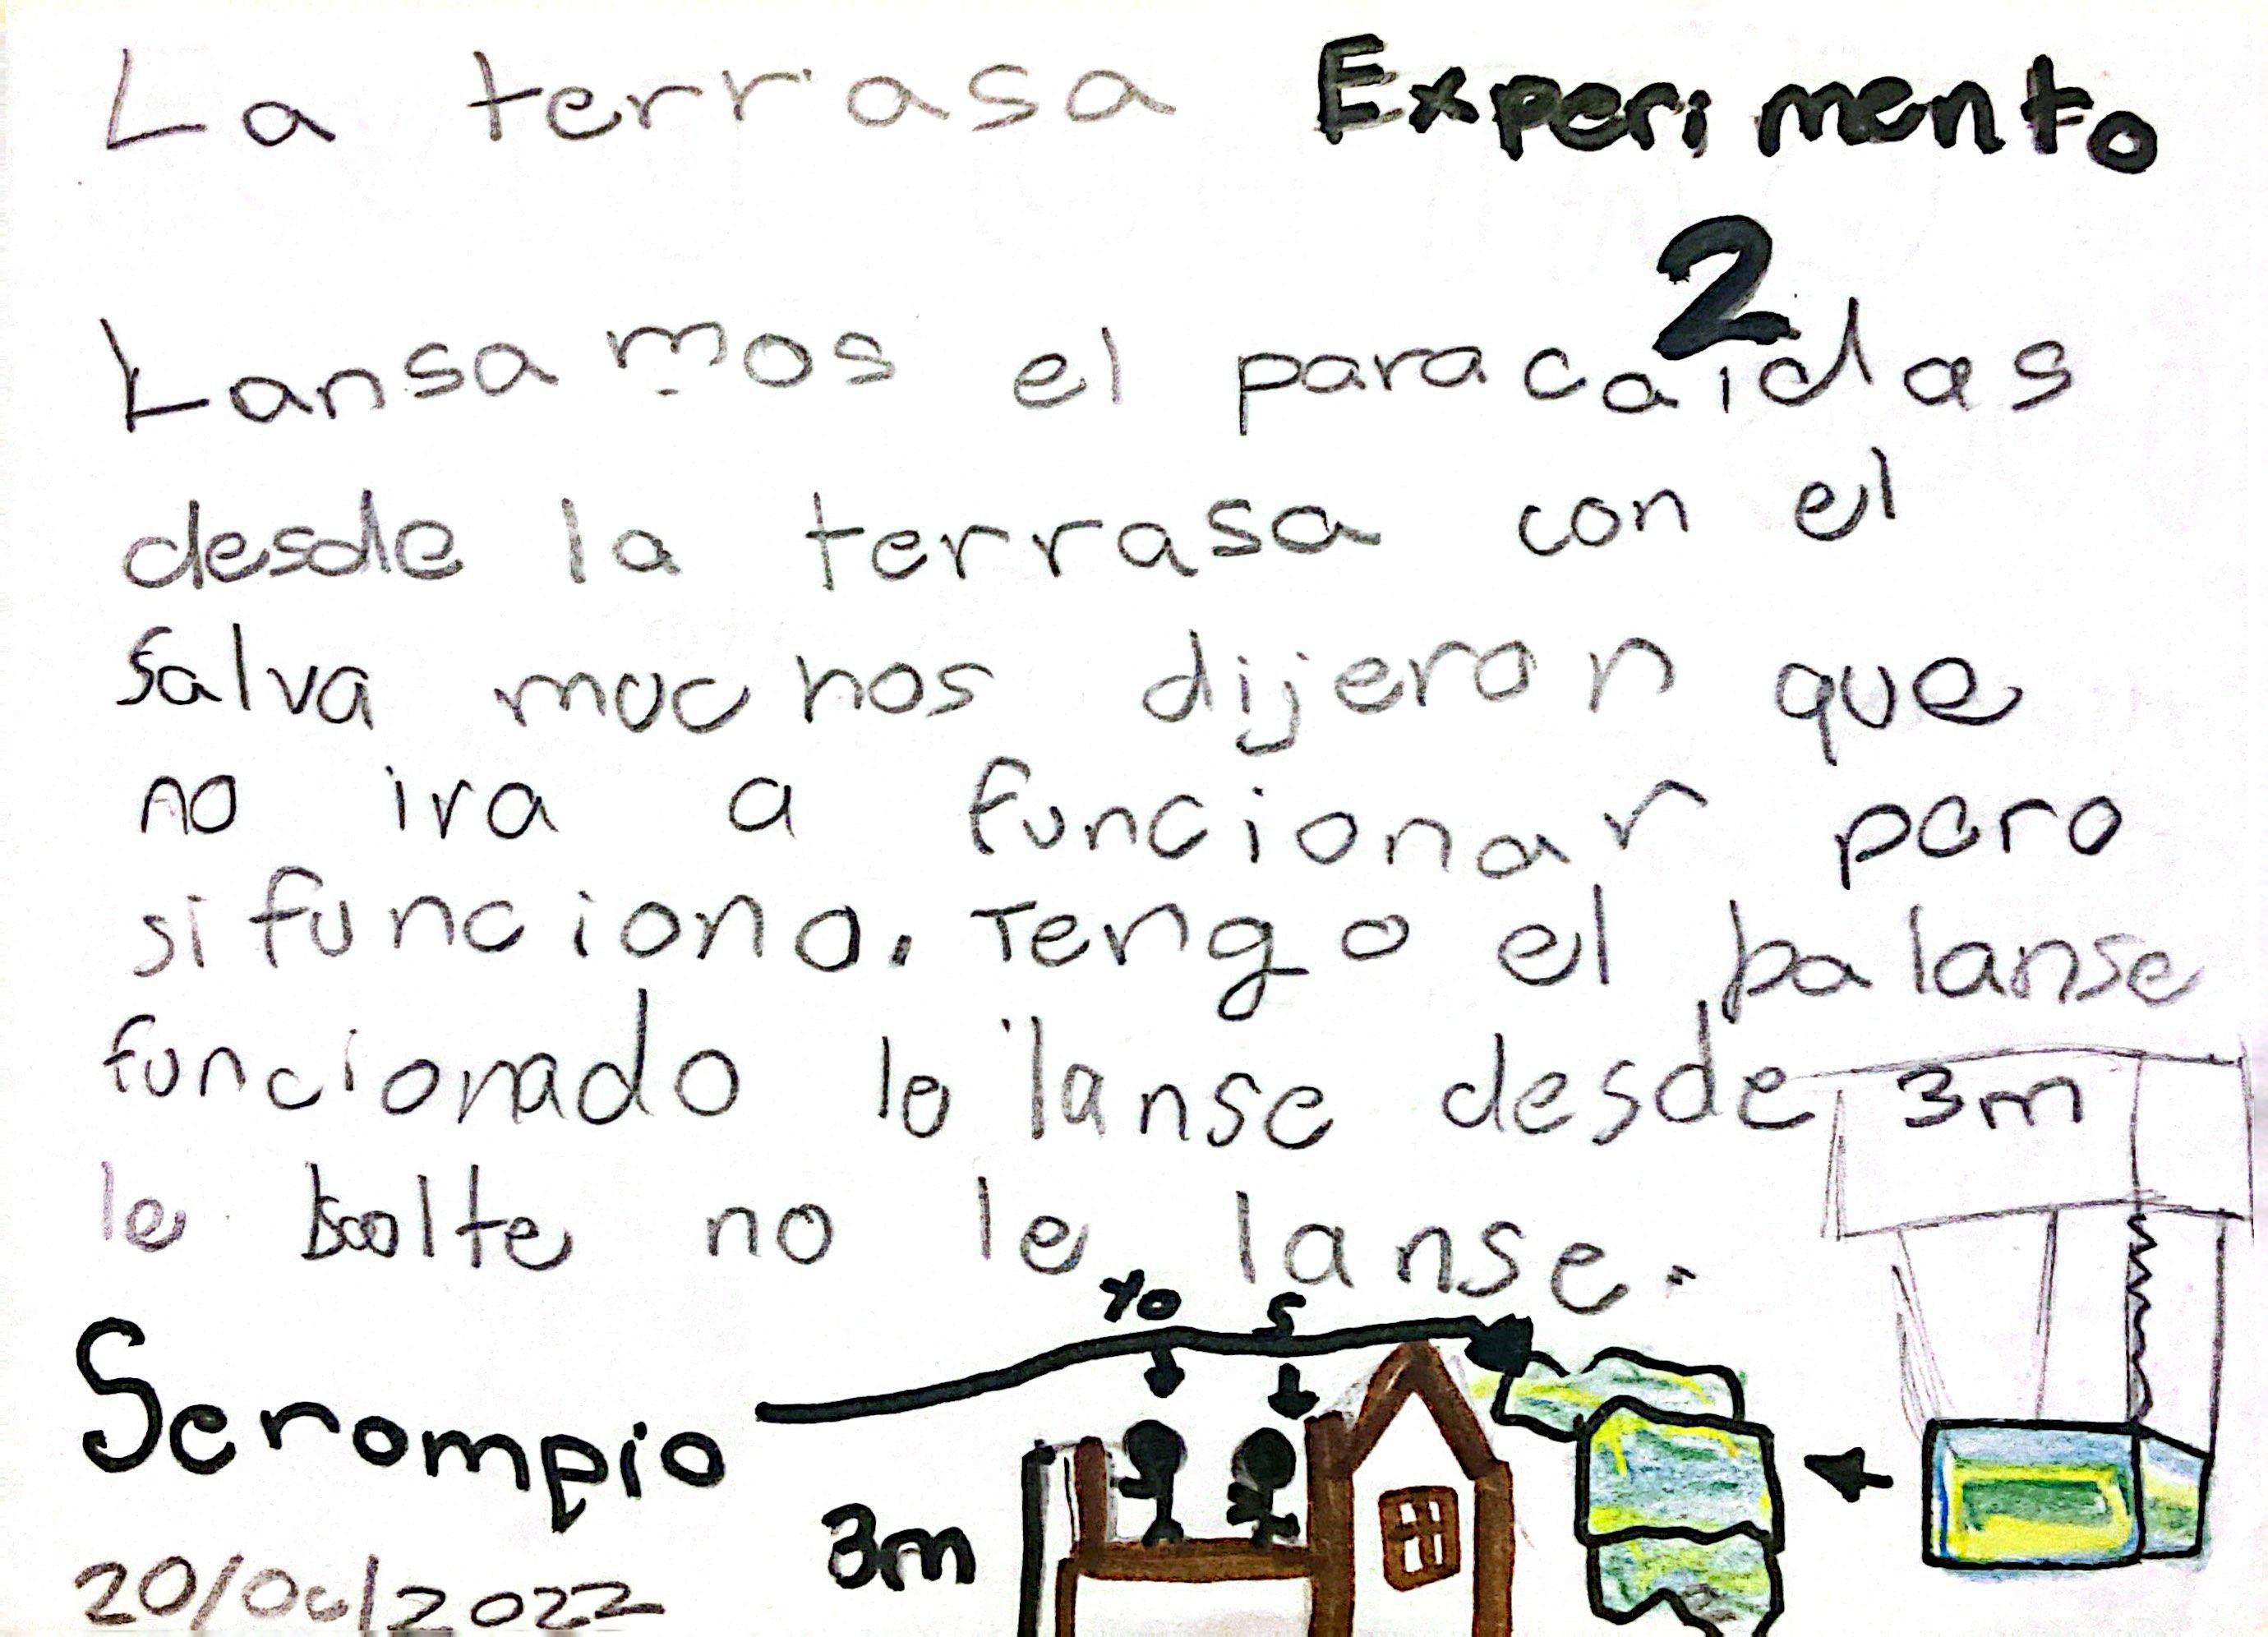 La terrasa Experimento
2
Lansamos el paracaidas
desde la terrasa con el
Salva muchos dijeron que
no ira a funcionar pero
si funciono. Tengo el balanse
funcionado lo lanse desde 3m
le no le lanse.
Yo S
Se rompio
3m
20/06/2022